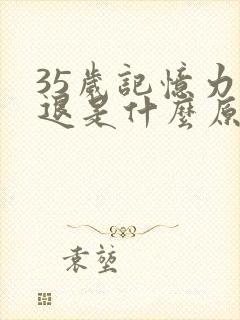 35歲記憶力
退是什麼原
袁堃